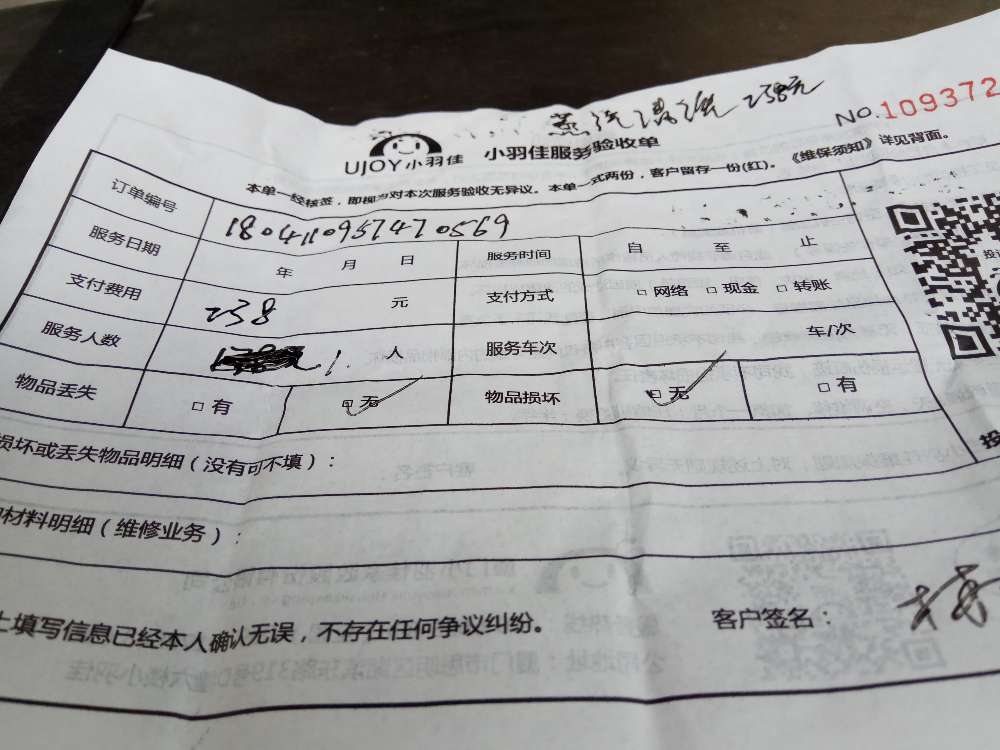 蒸汽清洗 238元
No.109372
UJOY小羽佳 小羽佳服务验收单
本单一经核签，即视为对本次服务验收无异议。本单一式两份，客户留存一份(红)。《维保须知》详见背面。
订单编号 1804110957470569
服务日期 年 月 日 服务时间 自 至 止
支付费用 238 元 支付方式 □ 网络 □ 现金 □ 转账
服务人数 1 人 服务车次 车/次
物品丢失 □ 有 □ 无 物品损坏 □ 无 □ 有
损坏或丢失物品明细（没有可不填）：
材料明细（维修业务）：
上填写信息已经本人确认无误，不存在任何争议纠纷。 客户签名：